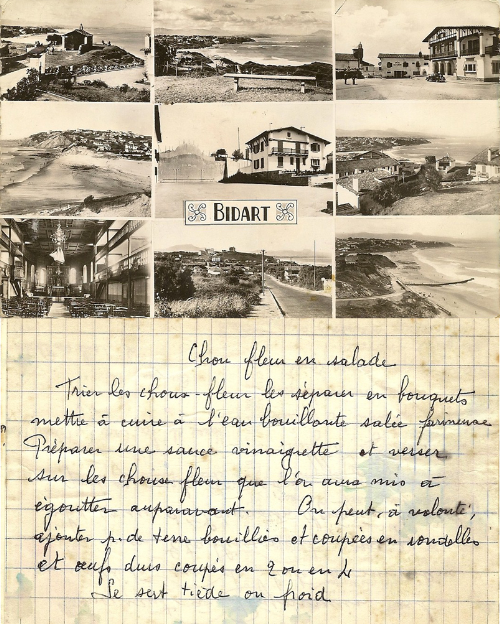 BIDART
Chou fleur en salade
Trier les choux-fleur les séparer en bouquets
mettre à cuire à l'eau bouillante salée farineuse
Préparer une sauce vinaigrette et verser
sur les choux fleur que l'on aura mis à
égoutter auparavant. On peut, à volonté,
ajouter p. de terre bouillies et coupées en rondelles
et œufs durs coupés en 2 ou en 4
Se sert tiède ou froid